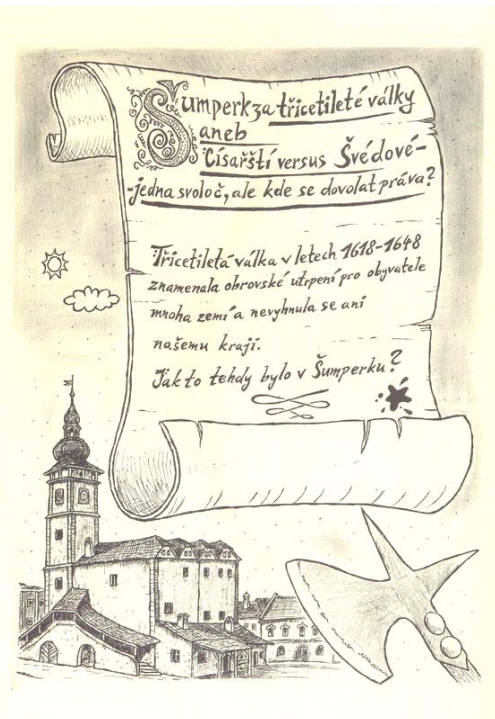 Šumperk za třicetileté války
aneb
Císařští versus Švédové-
-jedna svoloč, ale kde se dovolat práva?
Třicetiletá válka v letech 1618-1648
znamenala obrovské utrpení pro obyvatele
mnoha zemí a nevyhnula se ani
našemu kraji.
Jak to tehdy bylo v Šumperku?